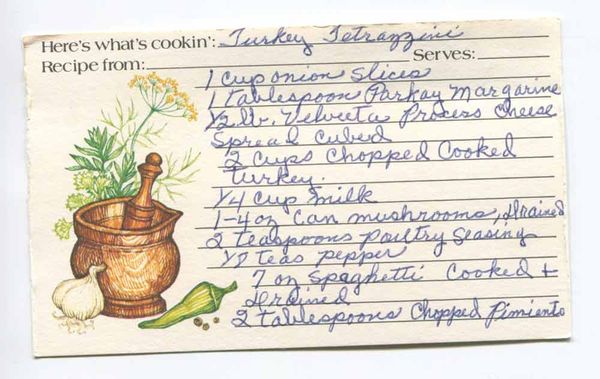 Here's what's cookin': Turkey Tetrazzini
Recipe from: Serves:
1 cup onion slices
1 tablespoon Parkay Margarine
1/2 lb. Velveeta Process Cheese
Spread Cubed
2 cups Chopped Cooked
turkey.
1/4 cup milk
1-4 oz can mushrooms, drained
2 teaspoons poultry seasing
1/2 teas pepper
7 oz Spaghetti Cooked +
drained
2 tablespoons Chopped pimiento